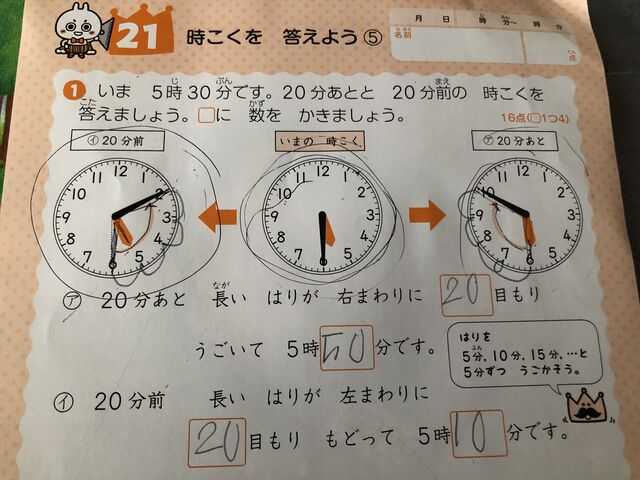 21 時こくを 答えよう ⑤
月 日 時 分〜 時 分
名前
点
1 いま 5時30分です。20分あとと 20分前の 時こくを
答えましょう。□に 数を かきましょう。
16点(□1つ4)
㋑20分前
いまの 時こく
㋐20分あと
㋐ 20分あと 長い はりが 右まわりに 20 目もり
うごいて 5時 50 分です。
はりを
5分、10分、15分、…と
5分ずつ うごかそう。
㋑ 20分前 長い はりが 左まわりに
20 目もり もどって 5時 10 分です。